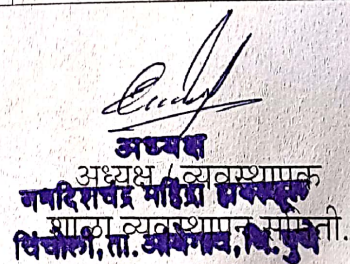 अध्यक्ष
अध्यक्ष / व्यवस्थापक
जगदिशचंद्र महिंद्रा हायस्कूल
शाळा व्यवस्थापन समिती.
चिंचोली, ता. आंबेगाव, जि. पुणे